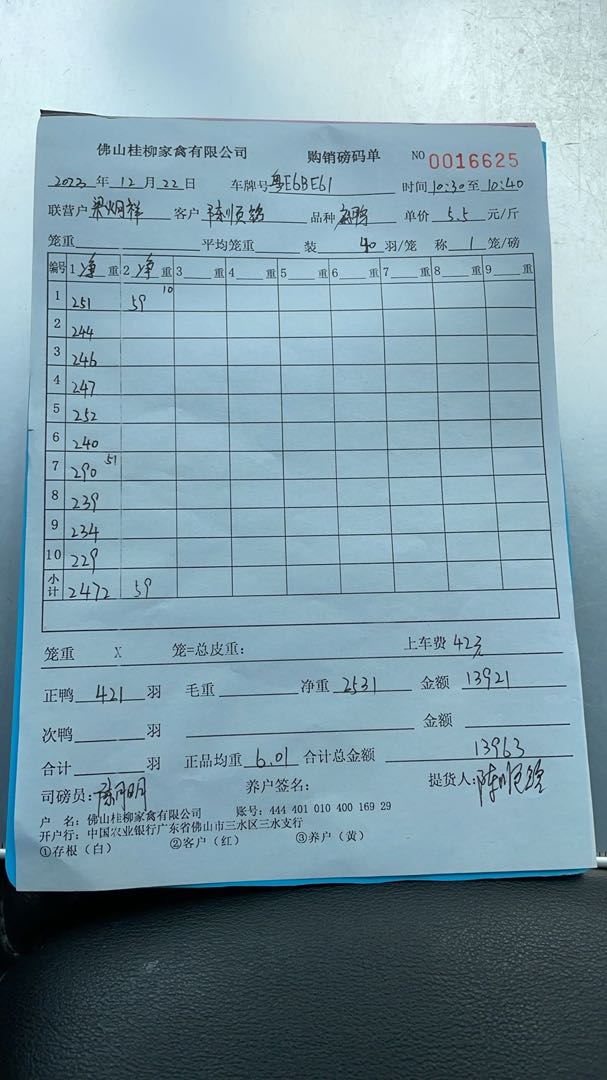 佛山桂柳家禽有限公司 购销磅码单 NO 0016625
2023年12月22日 车牌号粤E6BE61 时间10:30至10:40
联营户梁炳祥 客户陈顺 品种 单价5.5元/斤
笼重 平均笼重 装40羽/笼 称1笼/磅
编号 1净重 2净重 3重 4重 5重 6重 7重 8重 9重
1 251 59 10
2 244
3 246
4 247
5 252
6 240
7 290 51
8 239
9 234
10 229
小计 2472 59
笼重 X 笼=总皮重: 上车费42元
正鸭421羽 毛重 净重2531 金额13921
次鸭 羽 金额
合计 羽 正品均重6.01 合计总金额13963
司磅员:陈明 养户签名: 提货人:陈顺
户 名:佛山桂柳家禽有限公司 账号:444 401 010 400 169 29
开户行:中国农业银行广东省佛山市三水区三水支行
①存根(白) ②客户(红) ③养户(黄)